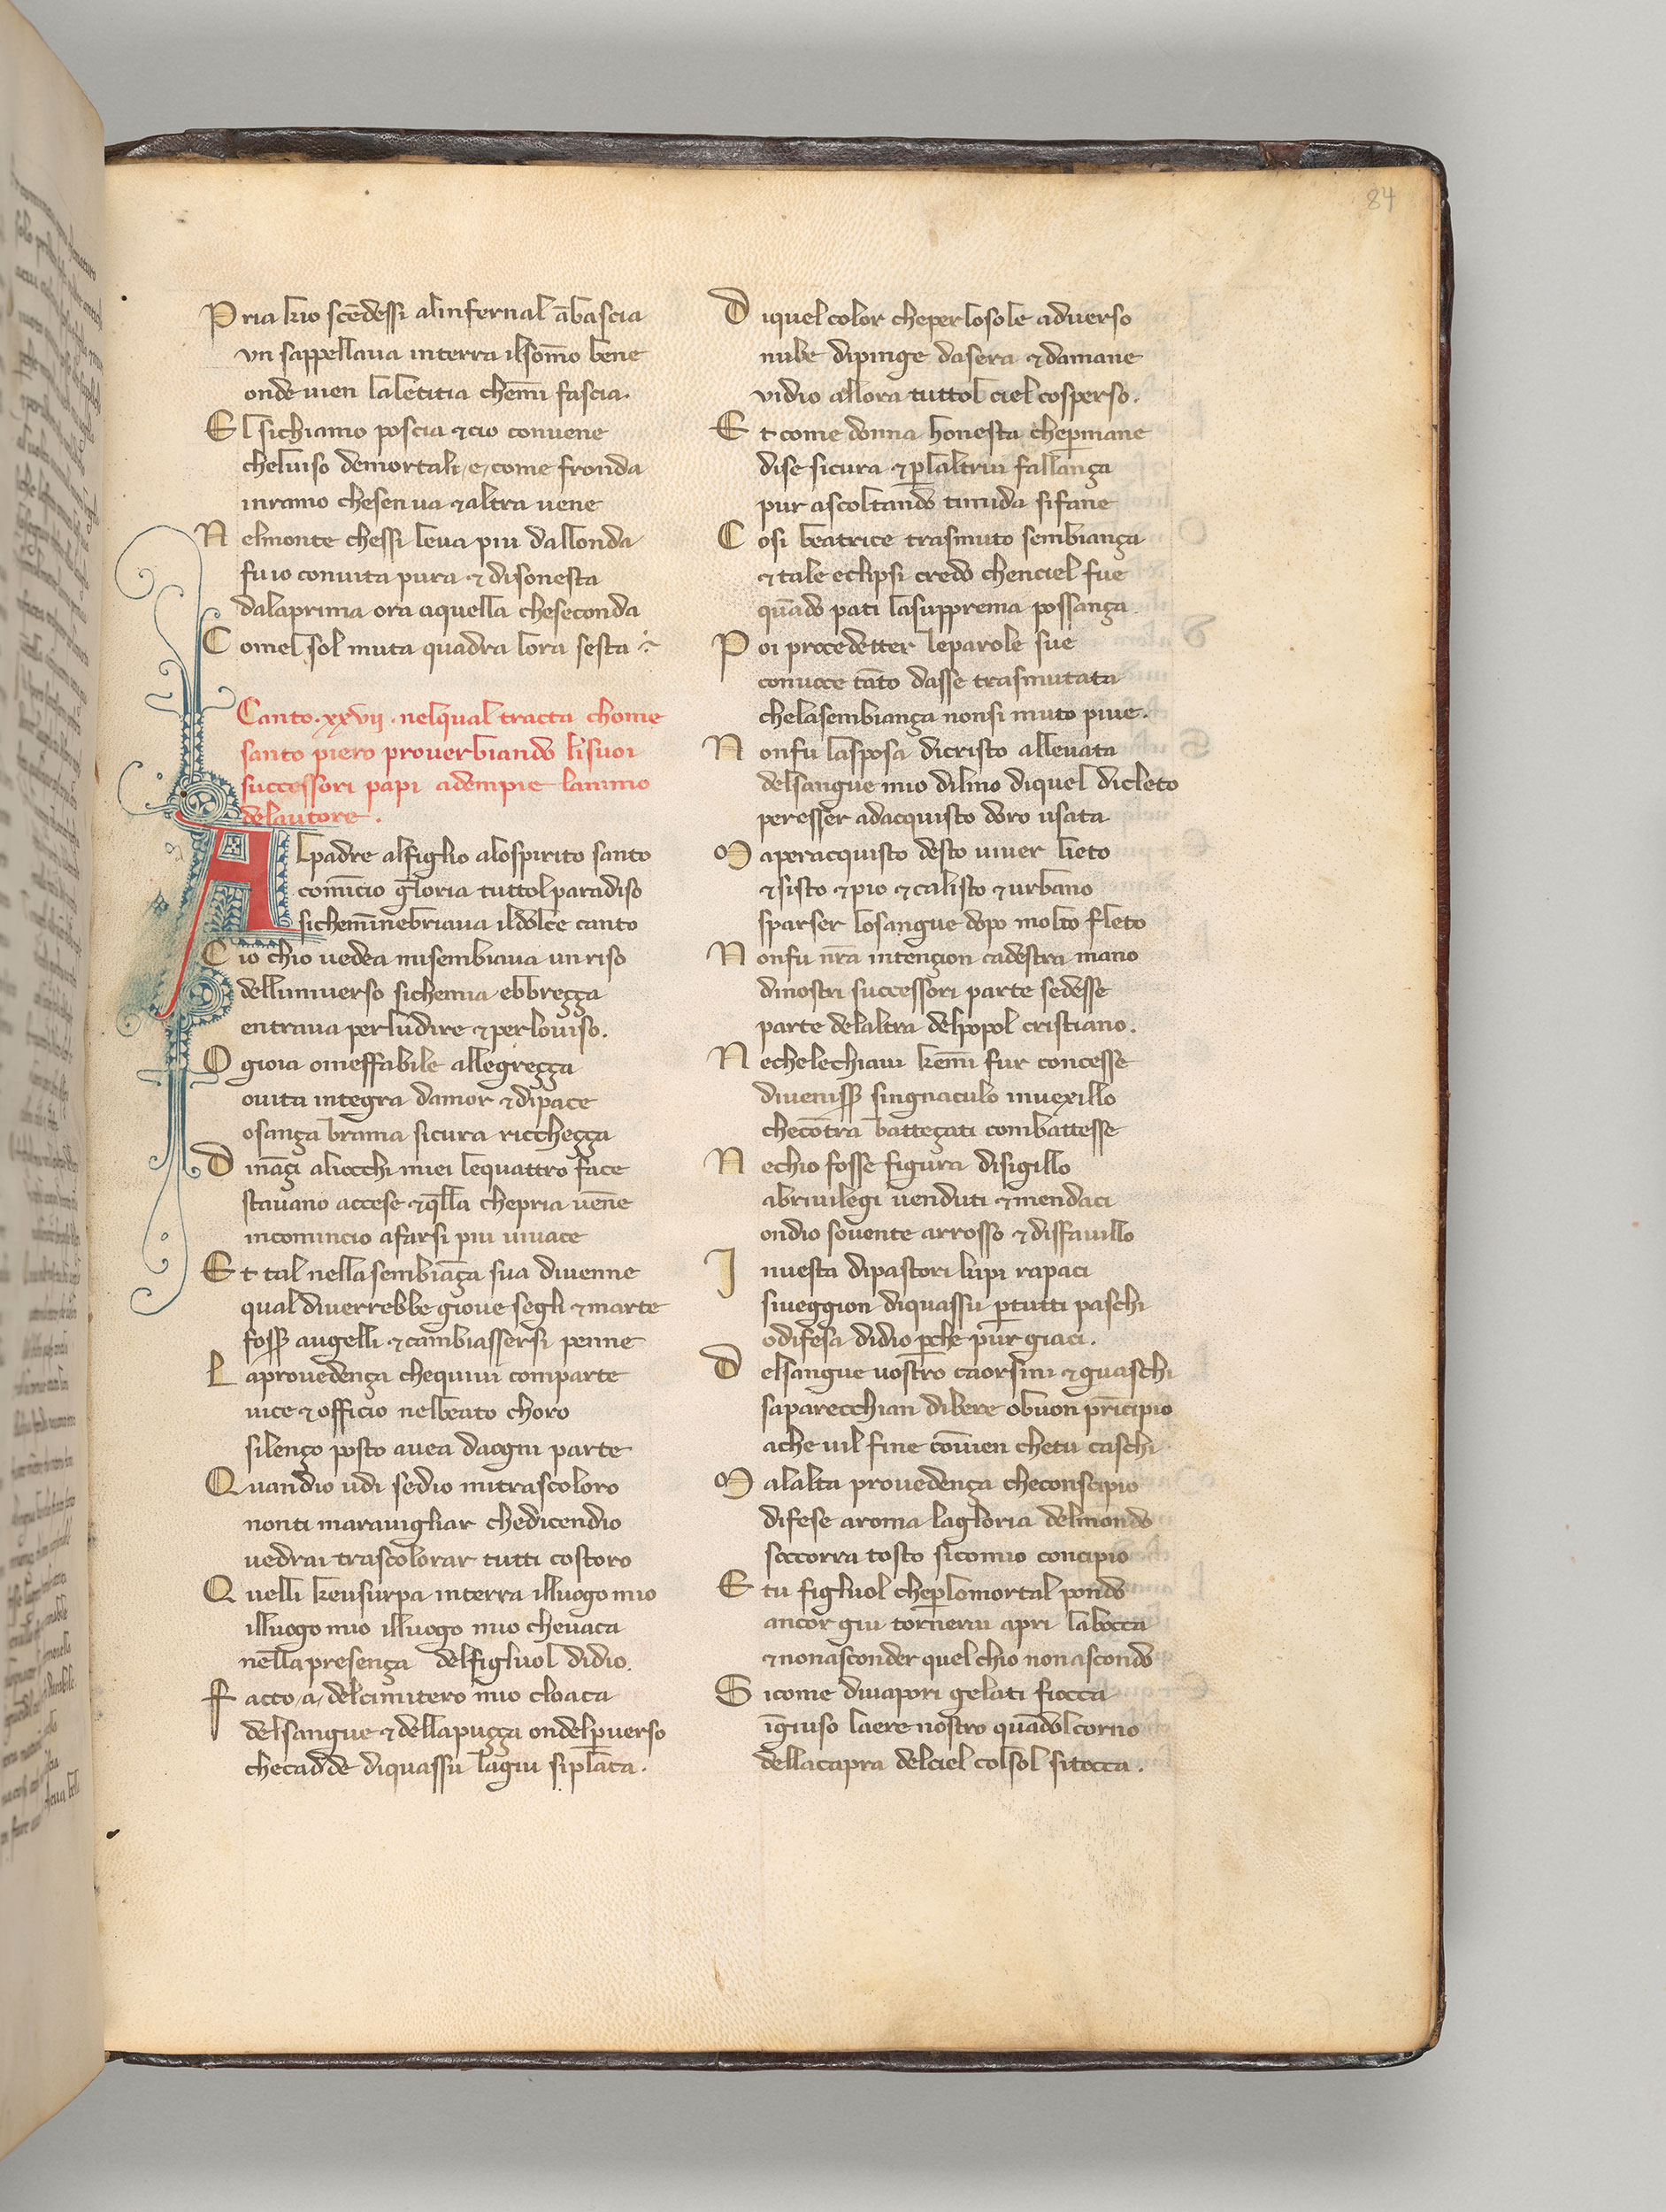 84
Pria kio scēdessi alinfernal ābascia
vn sappellaua interra ilsom̄o bene
onde uien laletitia chem̄i fascia.
El sichiamo poscia ⁊cio conuene
cheluso demortali, e, come fronda
inramo chesen ua ⁊altra uene
Nelmonte chessi leua piu dallonda
fuio conuita pura ⁊ disonesta
dalaprima ora aquella cheseconda
Comel sol muta quadra lora sesta
Canto .xxvij. nelqual tracta chome
santo piero prouerbiando lisuoi
successori papi adempie lanimo
delautore.
Alpadre alfiglio alospirito santo
comīcio gloria tuttolparadiso
sichem̄inebriaua ildolce canto
Cio chio uedea misembiaua unriso
delluniuerso sichemia ebbreçça
entraua perludire ⁊perlouiso.
O gioia oineffabile allegreçça
ouita integra damor ⁊dipace
osança brama sicura riccheçça
Dināçi aliocchi miei lequattro face
stauano accese ⁊q̄lla chepria uēne
incomincio afarsi piu uiuace
Et tal nella sembiāça sua diuenne
qual diuerrebbe gioue segli ⁊marte
fosser̄ augelli ⁊cambiassersi penne
Laprouedença chequiui comparte
uice ⁊officio nelbeato choro
silenço posto auea daogni parte
Quandio udi sedio mitrascoloro
nonti marauigliar chedicendio
uedrai trascolorar tutti costoro
Quelli keusurpa interra illuogo mio
illuogo mio illuogo mio cheuaca
nella presença delfigliuol didio.
Facto, a, delcimitero mio cloaca
delsangue ⁊dellapuçça ondelp̄uerso
checadde diquassu lagiu siplāca.
Diquel color cheper losole aduerso
nube dipinge dasera ⁊damane
vidio allora tuttol ciel cosperso.
Et come donna honesta chep̄mane
dise sicura ⁊p̄laltrui fallança
pur ascoltando timida sifane
Cosi beatrice trasmuto sembiança
⁊tale eclipsi credo chenciel fue
quādo pati lasupprema possança.
Poi procedetter leparole sue
conuoce tāto dasse trasmutata
chelasembiança nonsi muto piue.
Nonfu lasposa dicristo alleuata
delsangue mio dilino diquel dicleto
peresser adacquisto doro usata
Maperacquisto desto uiuer lieto
⁊sisto ⁊pio ⁊calisto ⁊urbano
sparser losangue dopo molto fleto
Nonfu nr̄a intençion cadestra mano
dinostri successori parte sedesse
parte delaltra delpopol cristiano.
Nechelechiaui kem̄i fur concesse
diuenisser̄ singnaculo inuexillo
checōtra batteçati combattesse
Nechio fosse figura disigillo
apriuilegi uenduti ⁊mendaci
ondio souente arrosso ⁊disfauillo
Inuesta dipastori lupi rapaci
siueggion diquassu p̄tutti paschi
odifesa didio p̄che pur giaci.
Delsangue uostro caorsini ⁊guaschi
saparecchian dibere obuon prīcipio
ache uil fine cōuien chetu caschi
Malalta prouedença checonscipio
difese aroma lagloria delmondo
soccorra tosto sicomio concipio
E tu figliuol chep̄lomortal pondo
ancor giu tornerai apri labocca
⁊nonasconder quel chio non ascondo
Sicome diuapori gelati fiocca
īgiuso laere nostro quādol corno
dellacapra delciel colsol sitocca.